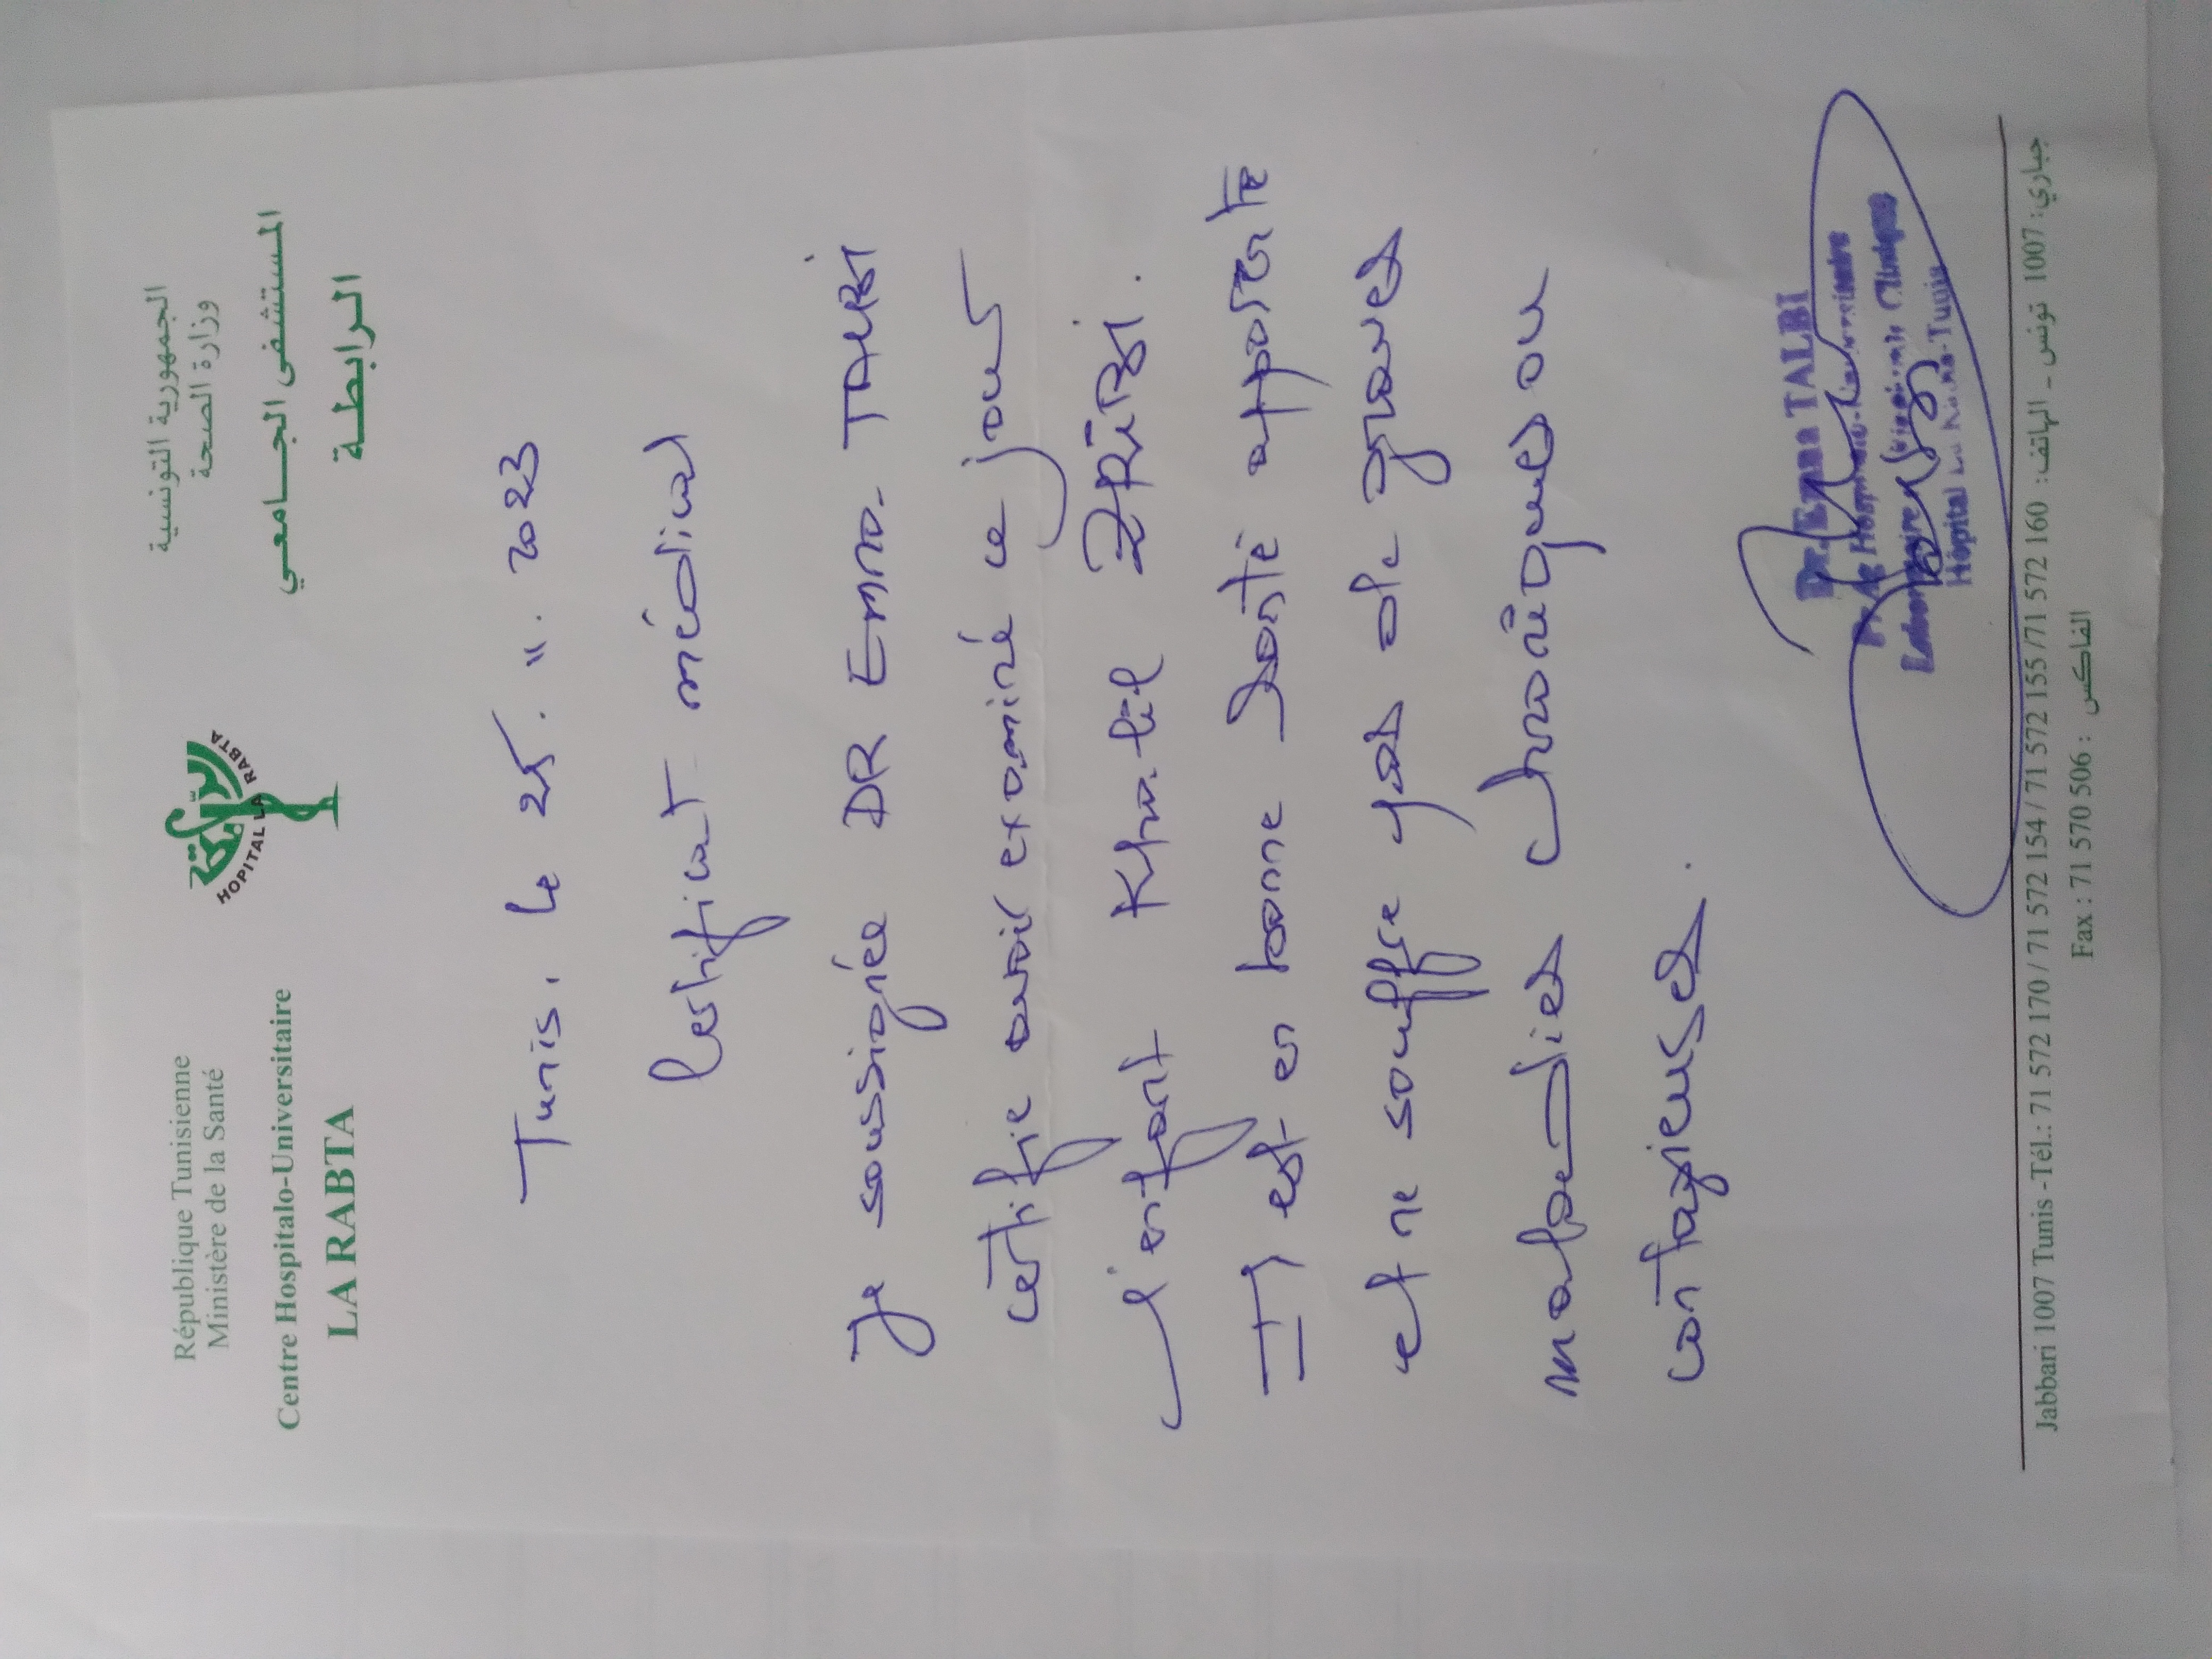 République Tunisienne
Ministère de la Santé
Centre Hospitalo-Universitaire
LA RABTA
HOPITAL LA RABTA
الرابطة
الجمهورية التونسية
وزارة الصحة
المستشفى الجـــامعي
الرابطـة
Tunis, le 25. 11. 2023
Certificat médical
Je soussignée DR Emna TALBI
certifie avoir examiné ce jour
l'enfant Khalil DRIDI.
Il est en bonne santé apparente
et ne souffre pas de graves
maladies chroniques ou
contagieuses.
Dr. Emna TALBI
Hôpital La Rabta-Tunis
Jabbari 1007 Tunis -Tél.: 71 572 170 / 71 572 154 / 71 572 155 /71 572 160 : جباري: 1007 تونس - الهاتف
Fax : 71 570 506 : الفاكس